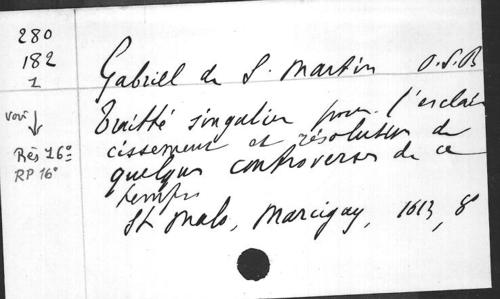 280
182
1
Gabriel de S. Martin O.S.B
voir
Traitté singulier pour l'esclair
cissement et résolution de
Rés 16°
quelques controverses de ce
RP 16°
temps
St Malo, Marcigay, 1613, 8°